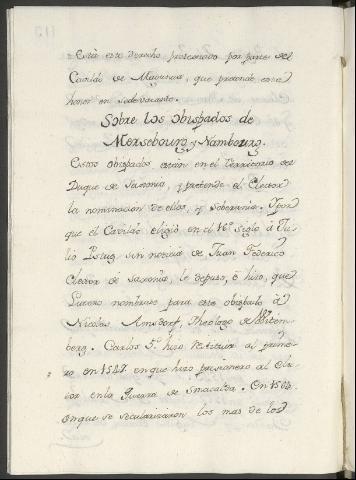 Está este derecho protestado por parte del
Cavildo de Maguncia, que pretende este
honor en sede vacante.
Sobre los Obispados de
Mersebourg y Nambourg.
Estos Obispados están en el territorio del
Duque de Saxonia, y pretende el Elector
la nominacion de ellos, y soberania. Y por
que el Cavildo eligió en el 16º Siglo à Ju-
lio Pflug sin noticia de Juan Federico
Elector de Saxonia, le depuso, è hizo, que
Lutero nombrase para este obispado à
Nicolas Amsdorf, Theologo de Witem-
berg. Carlos 5º hizo restituir al prime-
ro en 1547 en que hizo prisionero al Elec-
tor en la guerra de Smacalda. En 1564.
en que se secularizaron los mas de los